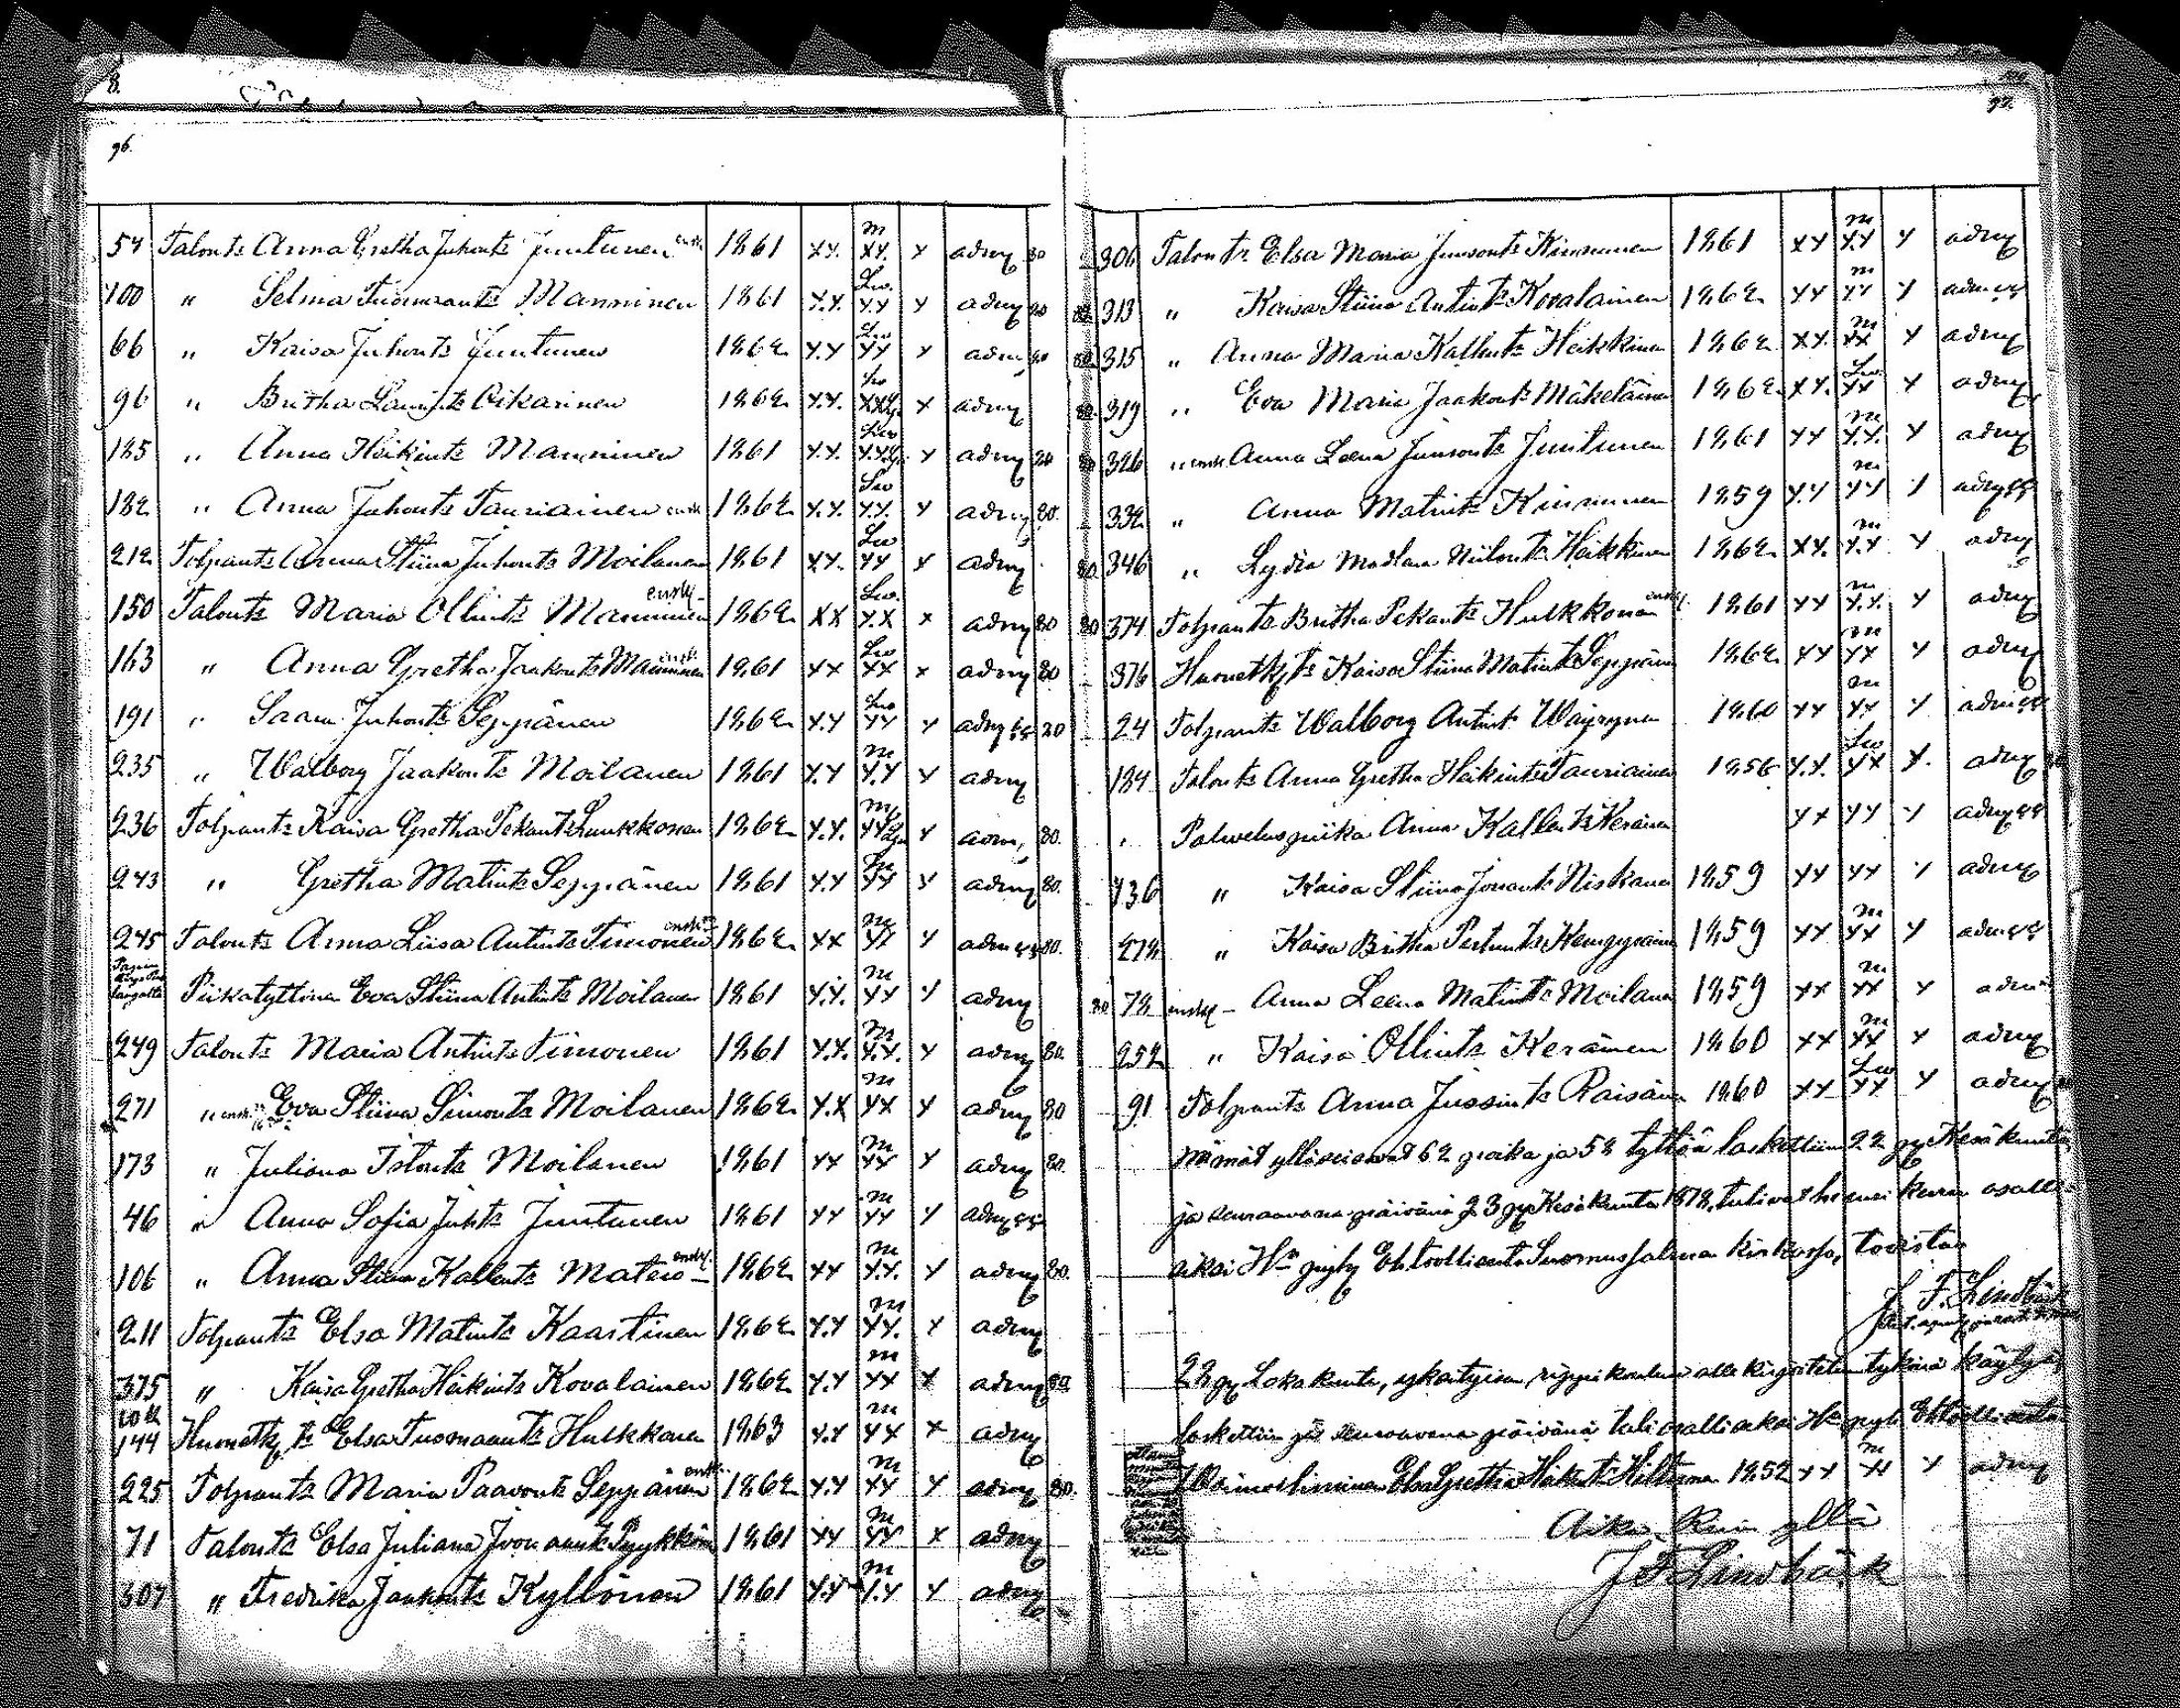 8.
96.
54 Talontr Anna Gretha Juhontr Juntunen 1861 XX. m XX. X admg 80
100 " Selma Tuomaantr Manninen 1861 XX. Lw. XX X admg 80
66 " Kaisa Juhontr Juntunen 1862 XX Lw XX X adm 80
96 " Britha Laurintr Oikarinen 1862 XX. Lw X admg
185 " Anna Heikintr Manninen 1861 XX. Lw X admg
182 " Anna Juhontr Tauriainen 1862 XX. Lw XX. X admg 80.
212 Tolpantr Anna Stiina Juhontr Moilanen 1861 XX. Lw XX X admg
150 Talontr Maria Ollintr Manninen 1862 XX Lw. XX X admg 80
163 " Anna Gretha Jaakontr Manninen 1861 XX Lw XX X admg 80
191 " Saara Juhontr Seppänen 1862 XX Lw XX X admg 80
235 " Walborg Jaakontr Moilanen 1861 XX m XX X admg
236 Tolpantr Kaisa Gretha Pekantr Luukkonen 1862 XX. m X adm, 80.
243 " Gretha Matintr Seppänen 1861 XX XX X admg 80.
245 Talontr Anna Liisa Antintr Timonen 1862 XX m XX X adm 80.
Piikatyttönen Eva Stiina Antintr Moilanen 1861 XX. m XX X admg
249 Talontr Maria Antintr Timonen 1861 XX. m XX. X admg 80.
271 " Eva Stiina Simontr Moilanen 1862 XX m XX X admg 80
173 " Juliana Moilanen 1861 XX m XX X admg 80.
46 " Anna Sofia Juhtr Juntunen 1861 XX m XX X admg
106 " Anna Stiina Kallentr Matero 1862 XX m XX. X admg 80.
211 Tolpantr Elsa Matintr Kaartinen 1862 XX m XX. X admg
375 " Kaisa Gretha Heikintr Kovalainen 1862 XX m XX X admg 80.
144 Elsa Tuomaantr Hulkkonen 1863 XX m XX X admg
225 Tolpantr Maria Paavontr Seppänen 1862 XX m XX X admg 80.
71 Talontr Elsa Juliana Pyykkön 1861 XX m XX X admg
307 " Fredrika Jaakontr Kyllönen 1861 XX m XX X admg
97.
306 Talontr Elsa Maria Junsontr Kinnunen 1861 XX m XX X admg
313 " Kaisa Stiina Antintr Kovalainen 1862 XX m XX X adm
315 " Anna Maria Kallentr Heikkinen 1862 XX. m XX X admg
319 " Eva Maria Jaakontr Mäkeläinen 1862 XX. Lw. XX X admg
326 " Anna Leena Junsontr Juntunen 1861 XX m XX. X admg
332 " Anna Matintr Kinnunen 1859 XX m XX X admg
346 " Lydia Niilontr Heikkinen 1862 XX. m XX X admg
374 Tolpantr Britha Pekantr Hulkkonen 1861 XX m XX. X admg
376 Kaisa Stiina Matintr Seppänen 1862 XX m XX X admg
24 Tolpantr Walborg Antintr Wäyrynen 1860 XX m XX X adm
184 Talontr Anna Gretha Heikintr Tauriainen 1856 XX. Lw XX X. admg
Palweluspiika Anna Kallentr Keränen XX XX X admg
136 " Kaisa Stiina Niskanen 1859 XX XX X admg
272 " Kaisa Britha 1859 XX m XX X adm
72 Anna Leena Matintr Moilanen 1859 XX m XX X adm
252 " Kaisa Ollintr Keränen 1860 XX m XX X admg
91 Tolpantr Anna Jussintr Räisänen 1860 XX Lw XX X admg
Nämät ylläseisowat 62 poika ja 52 tyttöä laskettiin 22 p. Kesäkuuta
ja seuraavana päivänä 23 p. Kesäkuuta 1878, tulivat ensi kerran osalli-
siksi Hn pyhy Ehtoollisesta Suomussalmen kirkossa, todistaa
J. F. Lindbäck
Lokakuuta, yksityisen rippikoulun allekirjoitetun tykönä käytyä,
laskettiin ja seuraavana päivänä tuli osalliseksi Hn pyh. Ehtoollisesta
Elsa Gretha Heikintr 1852 XX m XX X admg
Aika kuin yllä
J F Lindbäck